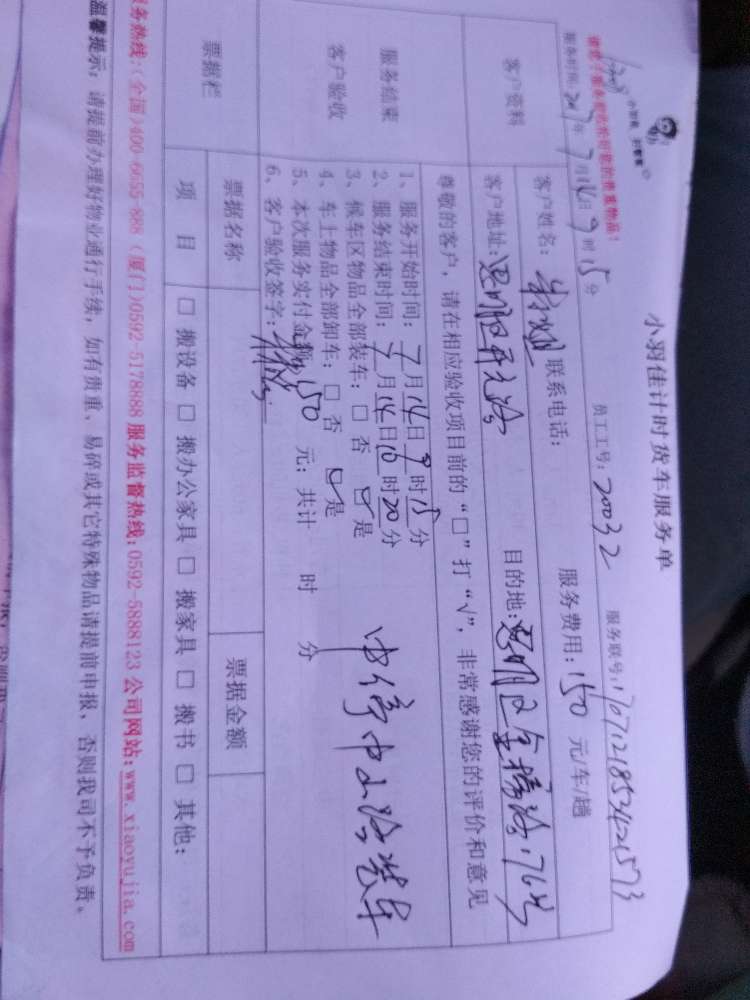 小羽佳计时货车服务单
员工工号：20032 服务联号：17071218534021573
请您了服务前收拾好您的贵重物品！
服务时间：2017年7月14日9时15分
客户资料
客户姓名： 联系电话： 服务费用：150元/车/趟
客户地址：思明区开元路 目的地：思明区金榜路176号
尊敬的客户，请在相应验收项目前的“□”打“√”，非常感谢您的评价和意见
服务结束
客户验收
1、服务开始时间：7月14日9时15分
2、服务结束时间：7月14日10时20分
3、候车区物品全部装车：□否 ☑是
4、车上物品全部卸车：□否 ☑是
5、本次服务实付金额：150元；共计 时 分
6、客户验收签字：
中停中山路装车
票据栏
票据名称 票据金额
项目 □搬设备 □搬办公家具 □搬家具 □搬书 □其他：
服务热线：(全国)400-6655-888 (厦门)0592-5178888 服务监督热线：0592-5888123 公司网站：www.xiaoyujia.com
温馨提示：请提前办理好物业通行手续，如有贵重、易碎或其它特殊物品请提前申报，否则我司不予负责。